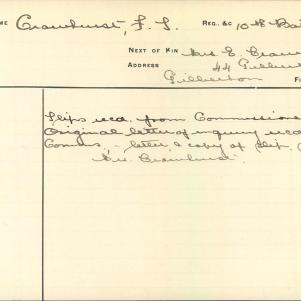 ME Crawhurst, F. L. Reg. &c 10th Bat
Next of Kin Mrs E. Craw
Address 44 Gilber
Gilberton
Slips recd. from Commissione
Original letter of inquiry recd
Comms, - letter & copy of slip
Mrs. Crawhurst.